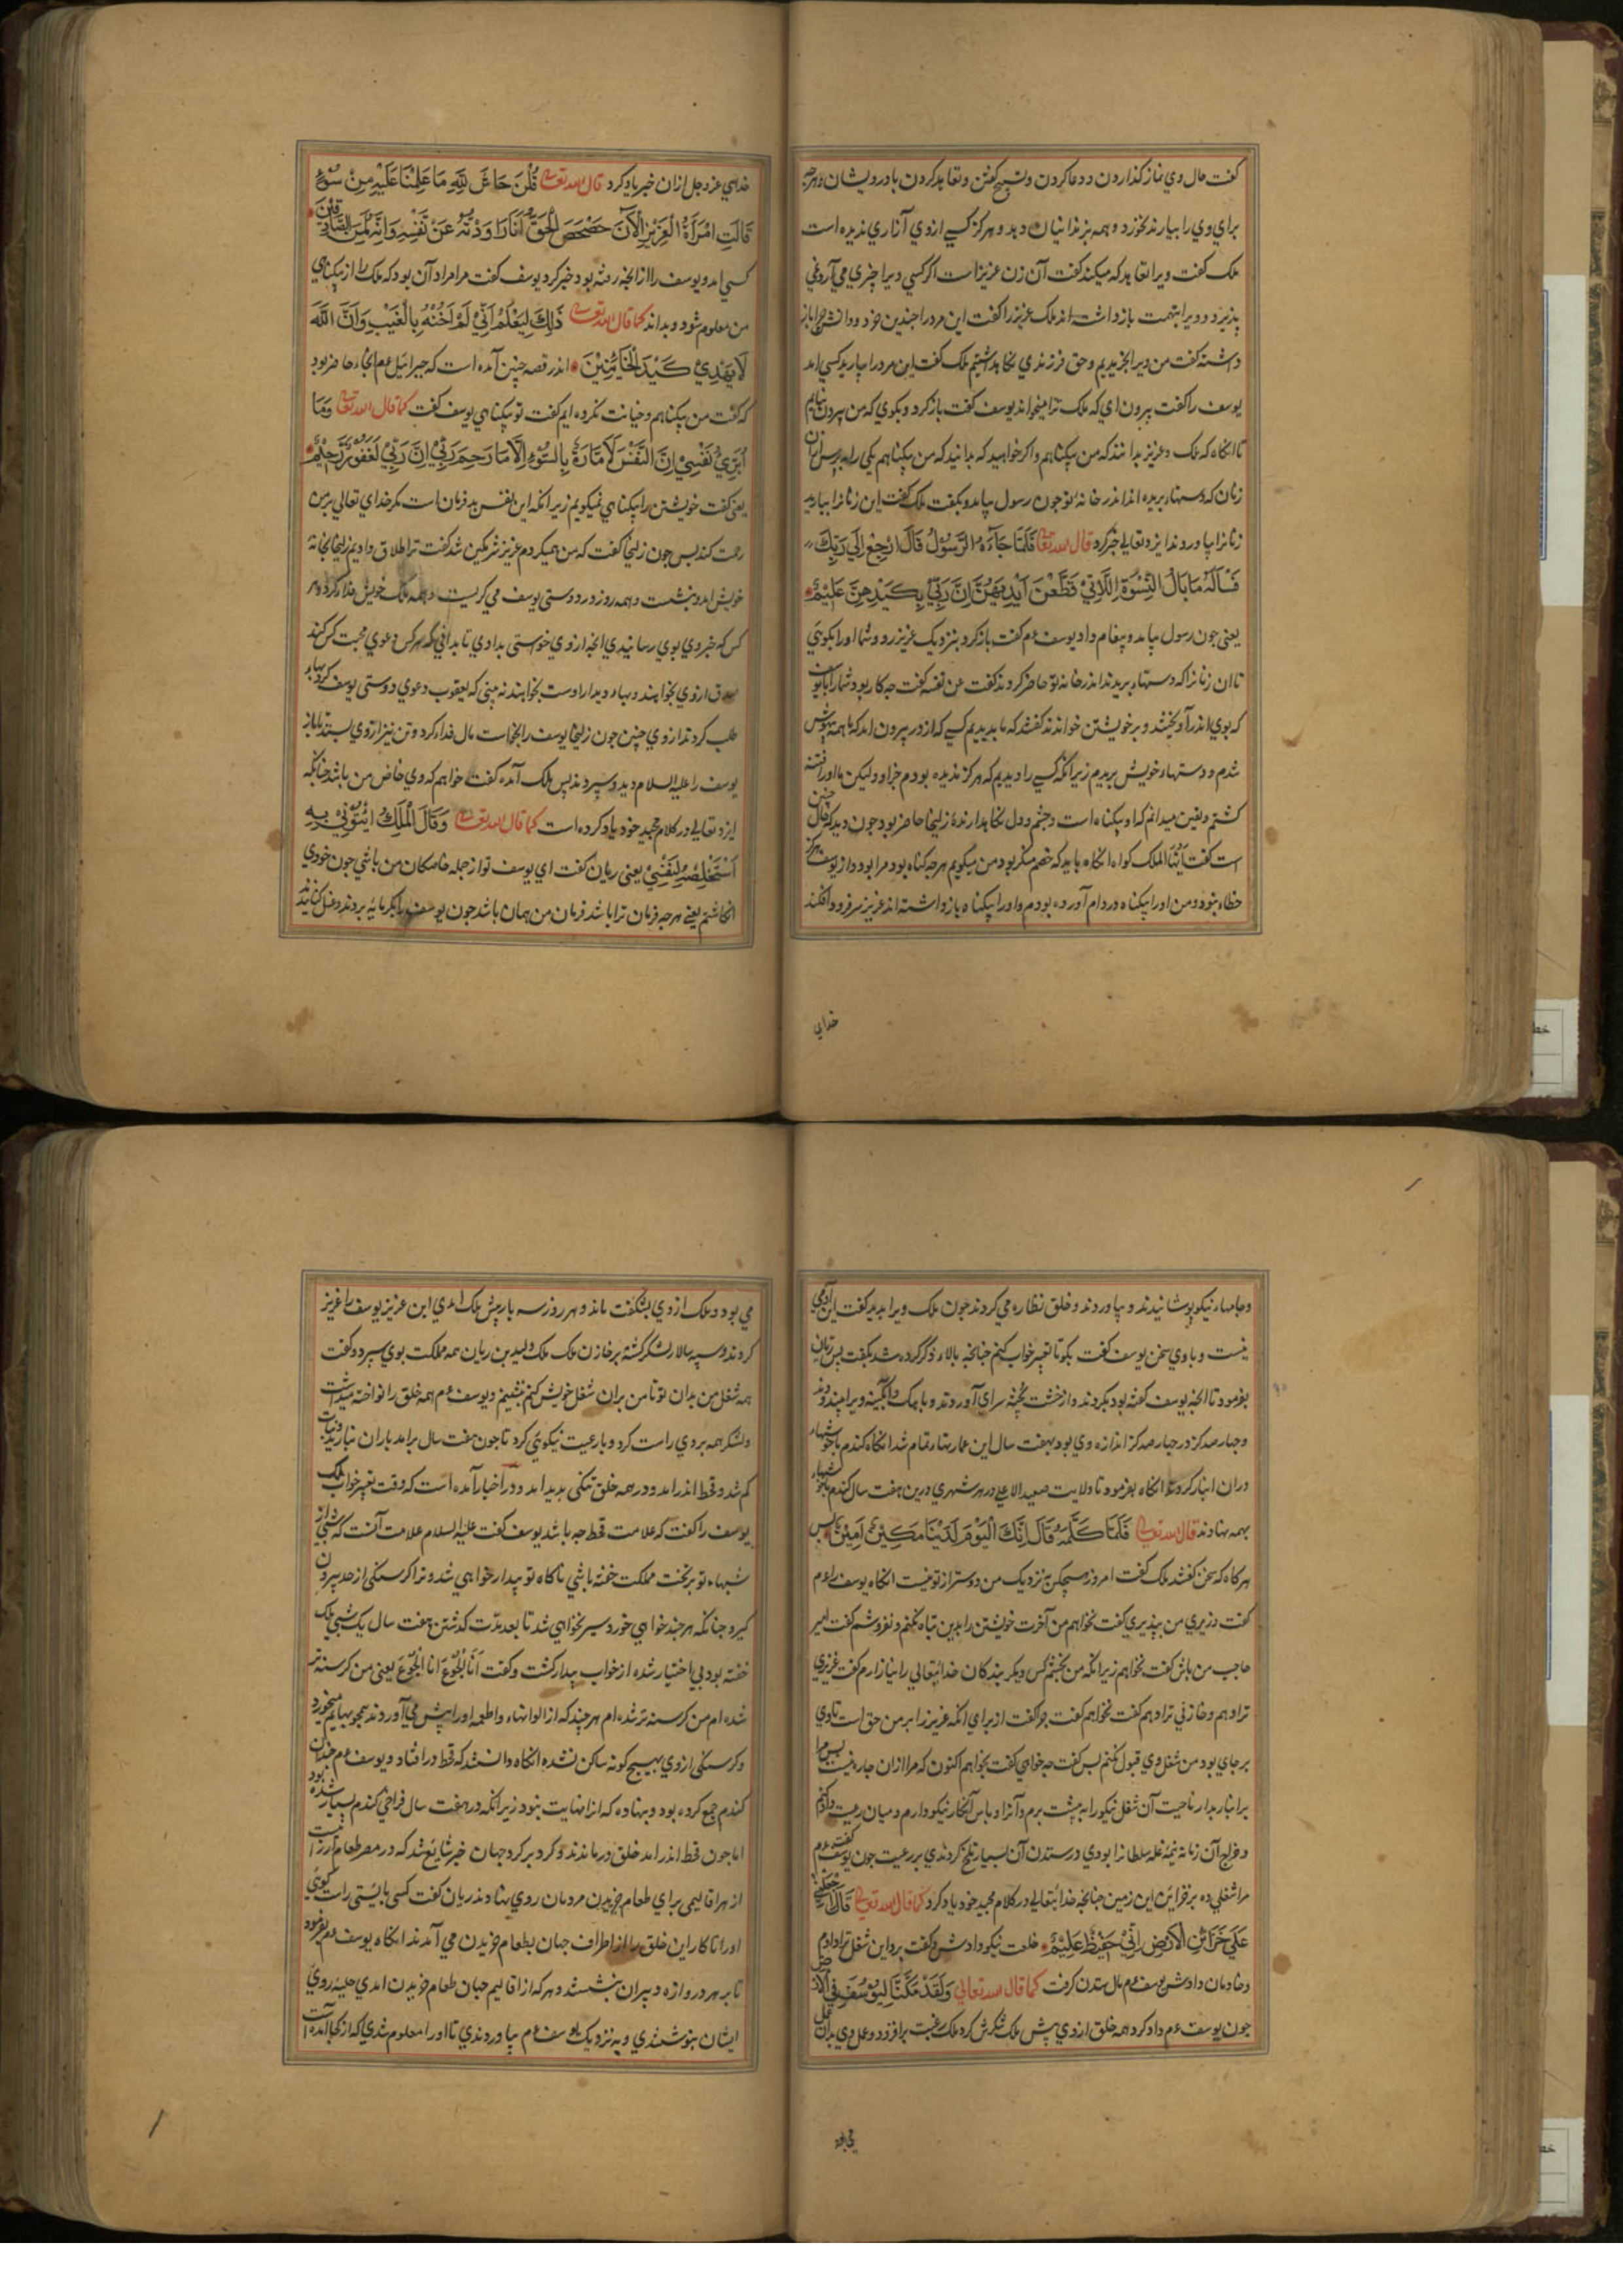 کفت حال وي نماز کذاردن و دعا کردن و تسبیح کفتن و تعاهد کردن با درویشان و هرچه
برای وي را بیارند نخورد و همه بزندانیان دهد و هرکز کسے از وي آزاري ندیده است
ملک کفت ویرا تعاهد که میکند کفت آن زن عزیز است اکر کسي ویرا چیزي مي آرد نمي
پذیرد و ویرا بتهمت بازداشته اند ملک عزیز را کفت این مرد را چندین خرد و دانش چرا باز
داشتهٔ کفت من ویرا بخریدیم و حق فرزندي نکاه داشتیم ملک کفت این مرد را بیارید کسي امد
یوسف را کفت بیرون اي که ملک ترا میخواند یوسف کفت باز کرد و بکوي که من بیرون نیایم
تا انکاه که ملک و عزیز بدانند که من بیکناهم و اکر خواهید که بدانید که من بیکناهم یکي را بپرس از آن
زنان که دستها بریده اند اندر خانهٔ تو چون رسول بیامد و بکفت ملک کفت این زنانرا بیارید
زنانرا بیاوردند ایزد تعالي خبر کرد قال الله تعالی فَلَمَّا جَآءَهُ الرَّسُوْلُ قَالَ ارْجِعْ اِلٰي رَبِّكَ
فَسْـَٔلْهُ مَا بَالُ النِّسْوَةِ اللَّاتِيْ قَطَّعْنَ اَيْدِيَهُنَّ اِنَّ رَبِّيْ بِكَيْدِهِنَّ عَلِيْمٌ
یعنی چون رسول بیامد و پیغام داد یوسف عم کفت باز کرد بنزدیک عزیز رو و شما او را بکویي
تا ان زنانرا که دستها ببریدند اندر خانهٔ تو حاضر کردند کفت عن نفسه کفت چه کار بود شمارا با یوسف
که بوي اندر آویختید و بر خویشتن خواندند کفتند که ما بدیدیم کسے که از در بیرون امد که ما همه بیهوش
شدم و دستها خویش بریدیم زیرا که کسے را دیدیم که هرکز ندیده بودم جز او ولیکن ما او را فتنه
کشتم و یقین میدانم که او بیکناه است و چشم و دل نکاهدارنده زلیخا حاضر بود چون دید که حال چنین
است کفت ایها الملک کواه انکاه باید که خصم منکر بود من میکویم هرچه کناه بود مرا بود و از یوسف هرکز
خطا نبود و من او را بیکناه در دام آورده بودم و او را بیکناه بازداشته اند عزیز سر فرود افکند
خداي
خداي عز و جل ازان خبر یاد کرد قال الله تعالی قُلْنَ حَاشَ لِلّٰهِ مَا عَلِمْنَا عَلَيْهِ مِنْ سُوْٓءٍ
قَالَتِ امْرَاَةُ الْعَزِيْزِ الْاٰنَ حَصْحَصَ الْحَقُّ اَنَا رَاوَدْتُّهُ عَنْ نَّفْسِهٖ وَاِنَّهُ لَمِنَ الصَّادِقِيْنَ
کسي امد و یوسف را از انچه رفته بود خبر کرد یوسف کفت مرا مراد آن بود که ملک را از بیکناهي
من معلوم شود و بداند کما قال الله تعالی ذٰلِكَ لِيَعْلَمَ اَنِّيْ لَمْ اَخُنْهُ بِالْغَيْبِ وَاَنَّ اللّٰهَ
لَا يَهْدِيْ كَيْدَ الْخَآئِنِيْنَ اندر قصه چنین آمده است که جبرائیل عم انجا حاضر بود
که کفت من بیکناهم و خیانت نکرده ایم کفت تو بیکناهي یوسف کفت کما قال الله تعالی وَمَآ
اُبَرِّئُ نَفْسِيْ اِنَّ النَّفْسَ لَاَمَّارَةٌ بِالسُّوْءِ اِلَّا مَا رَحِمَ رَبِّيْ اِنَّ رَبِّيْ لَغَفُوْرٌ رَّحِيْمٌ
یعني کفت خویشتن را بیکناهي نمیکویم زیرا انکه این نفس بد فرمان است مکر خداي تعالي بر من
رحمت کند پس چون زلیخا کفت که من میکردم عزیز شرمکین شد کفت ترا طلاق دادیم زلیخا بخانه
خویش امد و بنشست و همه روز در دوستي یوسف مي کریست و همه ملک خویش فدا کرد و هر
کس که خبر وي بوي رسانیدي انچه از وي خواستي بدادي تا بداني که هر کس دعوي محبت کسي کند
صدق از وي بخواهند و بهاء دیدار دوست بخواهند نه بیني که یعقوب دعوي دوستي یوسف کرد بهاء
طلب کردند از وي چنین چون زلیخا یوسف را بخواست مال فدا کرد و تن نیز از وي بستدند تا باز
یوسف را علیه السلام دید و سپردند پس ملک آمده کفت خواهم که وي خاص من باشد چنانکه
ایزد تعالي در کلام مجید خود یاد کرده است کما قال الله تعالی وَقَالَ الْمَلِكُ ائْتُوْنِيْ بِهٖٓ
اَسْتَخْلِصْهُ لِنَفْسِيْ یعني ریان کفت اي یوسف تو از جمله خاصکان من باشي چون خودي
انکاشتم یعني هرچه فرمان ترا باشد فرمان من همان باشد چون یوسف را بکرمابه بردند و غسل کنانیدند
و جامهاء نیکو پوشانیدند و بیاوردند و خلق نظاره مي کردند چون ملک ویرا بدید کفت این آدمي
نیست و با وي سخن یوسف کفت بکو تا تعبیر خواب کنم چنانچه بالا ذکر کرده شد بکفت پس ریان
بفرمود تا انچه یوسف کفته بود بکردند و از خشت پخته سراي آوردند و با آهک و آبکینه ویرا بیندودند
و چهار صد کز در چهار صد کز اندازه وي بود بهفت سال این عمارتها تمام شد انکاه کندم با خوشها
دران انبار کردند انکاه بفرمود تا ولایت صعید الاعلي در هر شهري درین هفت سال کندم با خوشها
بهمه نهادند قال الله تعالی فَلَمَّا كَلَّمَهُ قَالَ اِنَّكَ الْيَوْمَ لَدَيْنَا مَكِيْنٌ اَمِيْنٌ پس
هرکاه که سخن کفتند ملک کفت امروز هیچکس نزدیک من دوستر از تو نیست انکاه یوسف را عم
کفت وزیري من بپذیري کفت نخواهم من آخرت خویشتن را بدین تباه نکنم و نفروشم کفت امیر
حاجب من باش کفت نخواهم زیرا انکه من نخواهم کس دیکر بندکان خدایتعالي را بیازارم کفت عزیزي
ترا دهم و خازني ترا دهم کفت نخواهم کفت چرا کفت از براي انکه عزیز را بر من حق است تا وي
بر جاي بود من شغل وي قبول نکنم پس کفت چه خواهي کفت بخواهم اکنون که مرا ازان چاره نیست پس مرا
بر انبار بدار تا حیت آن شغل نیکو را به پشت برم و آنرا و پاس آنکار نیکو دارم و میان رعیت داد کنم
و خراج آن زمانه نیمهٔ غله سلطانرا بودي در ستدن آن بسیار تلخ کردندي بر رعیت چون یوسف عم کفت
مرا شغلي ده بر خزاین این زمین چنانچه خدایتعالي در کلام مجید خود یاد کرد کما قال الله تعالی قَالَ اجْعَلْنِيْ
عَلٰي خَزَآئِنِ الْاَرْضِ اِنِّيْ حَفِيْظٌ عَلِيْمٌ خلعت نیکو دادش و کفت برو این شغل ترا دادم
و خادمان دادش یوسف عم مال ستدن کرفت کما قال الله تعالي وَلَقَدْ مَكَّنَّا لِيُوْسُفَ فِي الْاَرْضِ
چون یوسف عم داد کرد همه خلق از وي پیش ملک شکرش کرد ملک رغبت بر افزود و عمل وي بدان
مي بود
مي بود و ملک از وي بشکفت ماند و هر روز سه بار پیش ملک امدي این عزیز یوسف را عزیز
کردند و سپه سالار لشکر کشته بر خازن ملک ملک ولید بن ریان همه مملکت بوي سپرد و کفت
همه شغل من بدان تو تا من بران شغل خویش کنم بنشینم و یوسف عم همه خلق را نواخته میداشت
و لشکر همه بر وي راست کرد و با رعیت نیکویي کرد تا چون هفت سال برامد باران نبارید و نبات
کم شد و قحط اندر امد و در همه خلق تنکي پدید امد و در اخبار آمده است که وقت تعبیر خواب ملک
یوسف را کفت که علامت قحط چه باشد یوسف کفت علیه السلام علامت آنست که شبي از
شبهاء تو بر تخت مملکت خفته باشي ناکاه تو بیدار خواهي شد و ترا کرسنکي از حد بیرون
کیرد چنانکه هر چند خواهي خورد سیر نخواهي شد تا بعد مدت کذشتن هفت سال یک شبي ملک
خفته بود بي اختیار شده از خواب بیدار کشت و کفت اَنَا الْجُوْع انا الْجُوْعَ یعني من کرسنه تر
شده ام من کرسنه تر شده ام هر چند که از الوانها و اطعمه او را پیش مي آوردند همچو بهایم میخورد
و کرسنکي از وي بهیچ کونه ساکن نشده انکاه دانستند که قحط در افتاد و یوسف عم چندان
کندم جمع کرده بود و بنهاده که انرا نهایت نبود زیرا انکه در هفت سال فراخي کندم بسیار شده بود
اما چون قحط اندر امد خلق درماندند و کرد بر کرد جهان خبر شایع شد که در مصر طعام ارزانست
از هر اقالیمي براي طعام خریدن مردمان روي نهادند ریان کفت کسي بایستي راست کوي
او را تا کار این خلق را از اطراف جهان بطعام خریدن مي آمدند انکاه یوسف عم بفرمود
تا بر هر دروازه دبیران بنشستند و هر که از اقالیم جهان طعام خریدن امدي حلیه روي
ایشان بنوشتندي و به نزدیک یوسف عم بیاوردندي تا او را معلوم شدي که از کجا آمده است